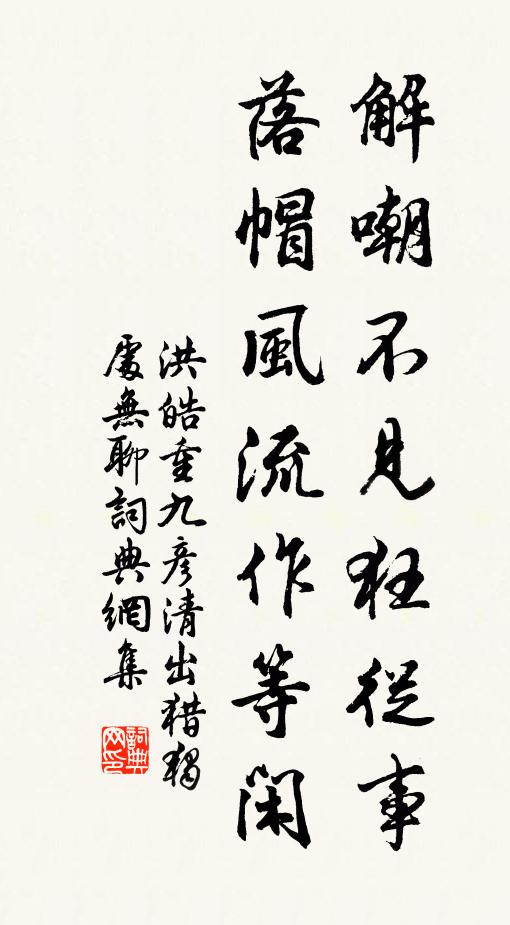 解嘲不見狂從事
落帽風流作等閑
洪皓重九彥清出猎獨
處無聊詞典網集
詞典网印